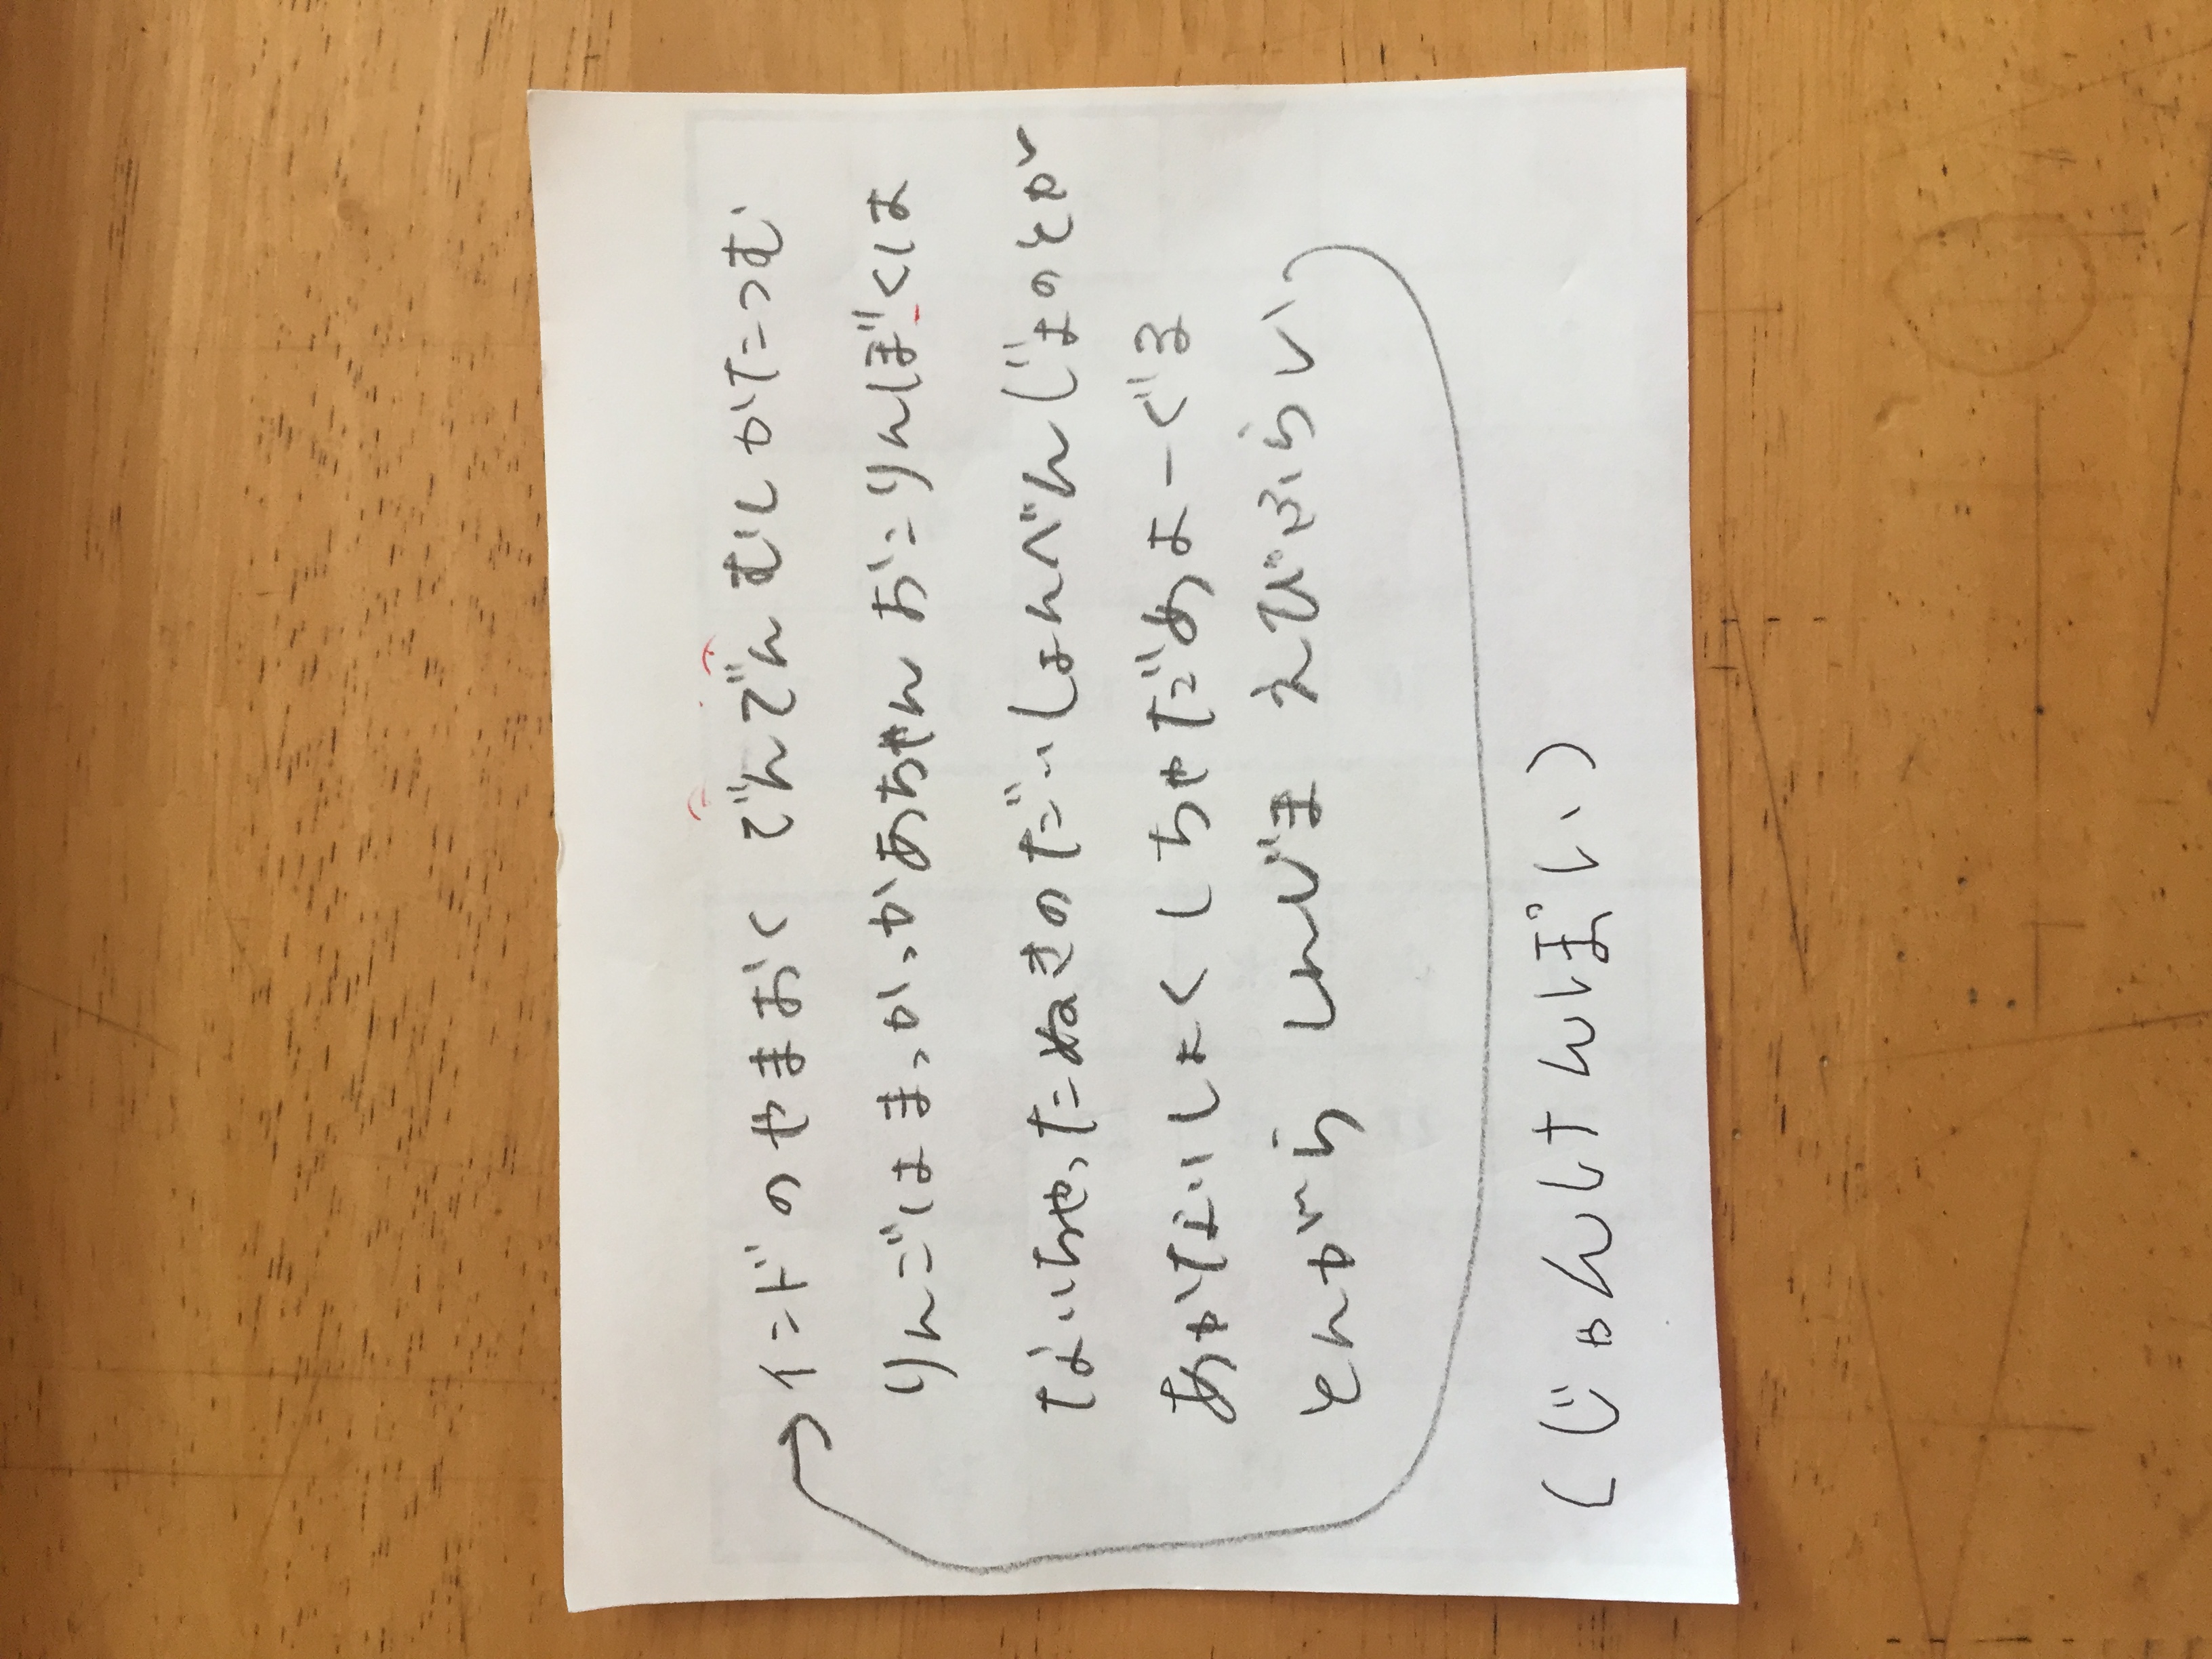 インドのやまおく でんでんむしかたつむ
りんごはまっかっかあちゃんおこりんぼくは
ないちゃったぬきのだいしょんべんじまのとかい
あかだいしょくしちゃだめよーぐる
とんがらしんじま えびふらい
(じゃんけんぽい)